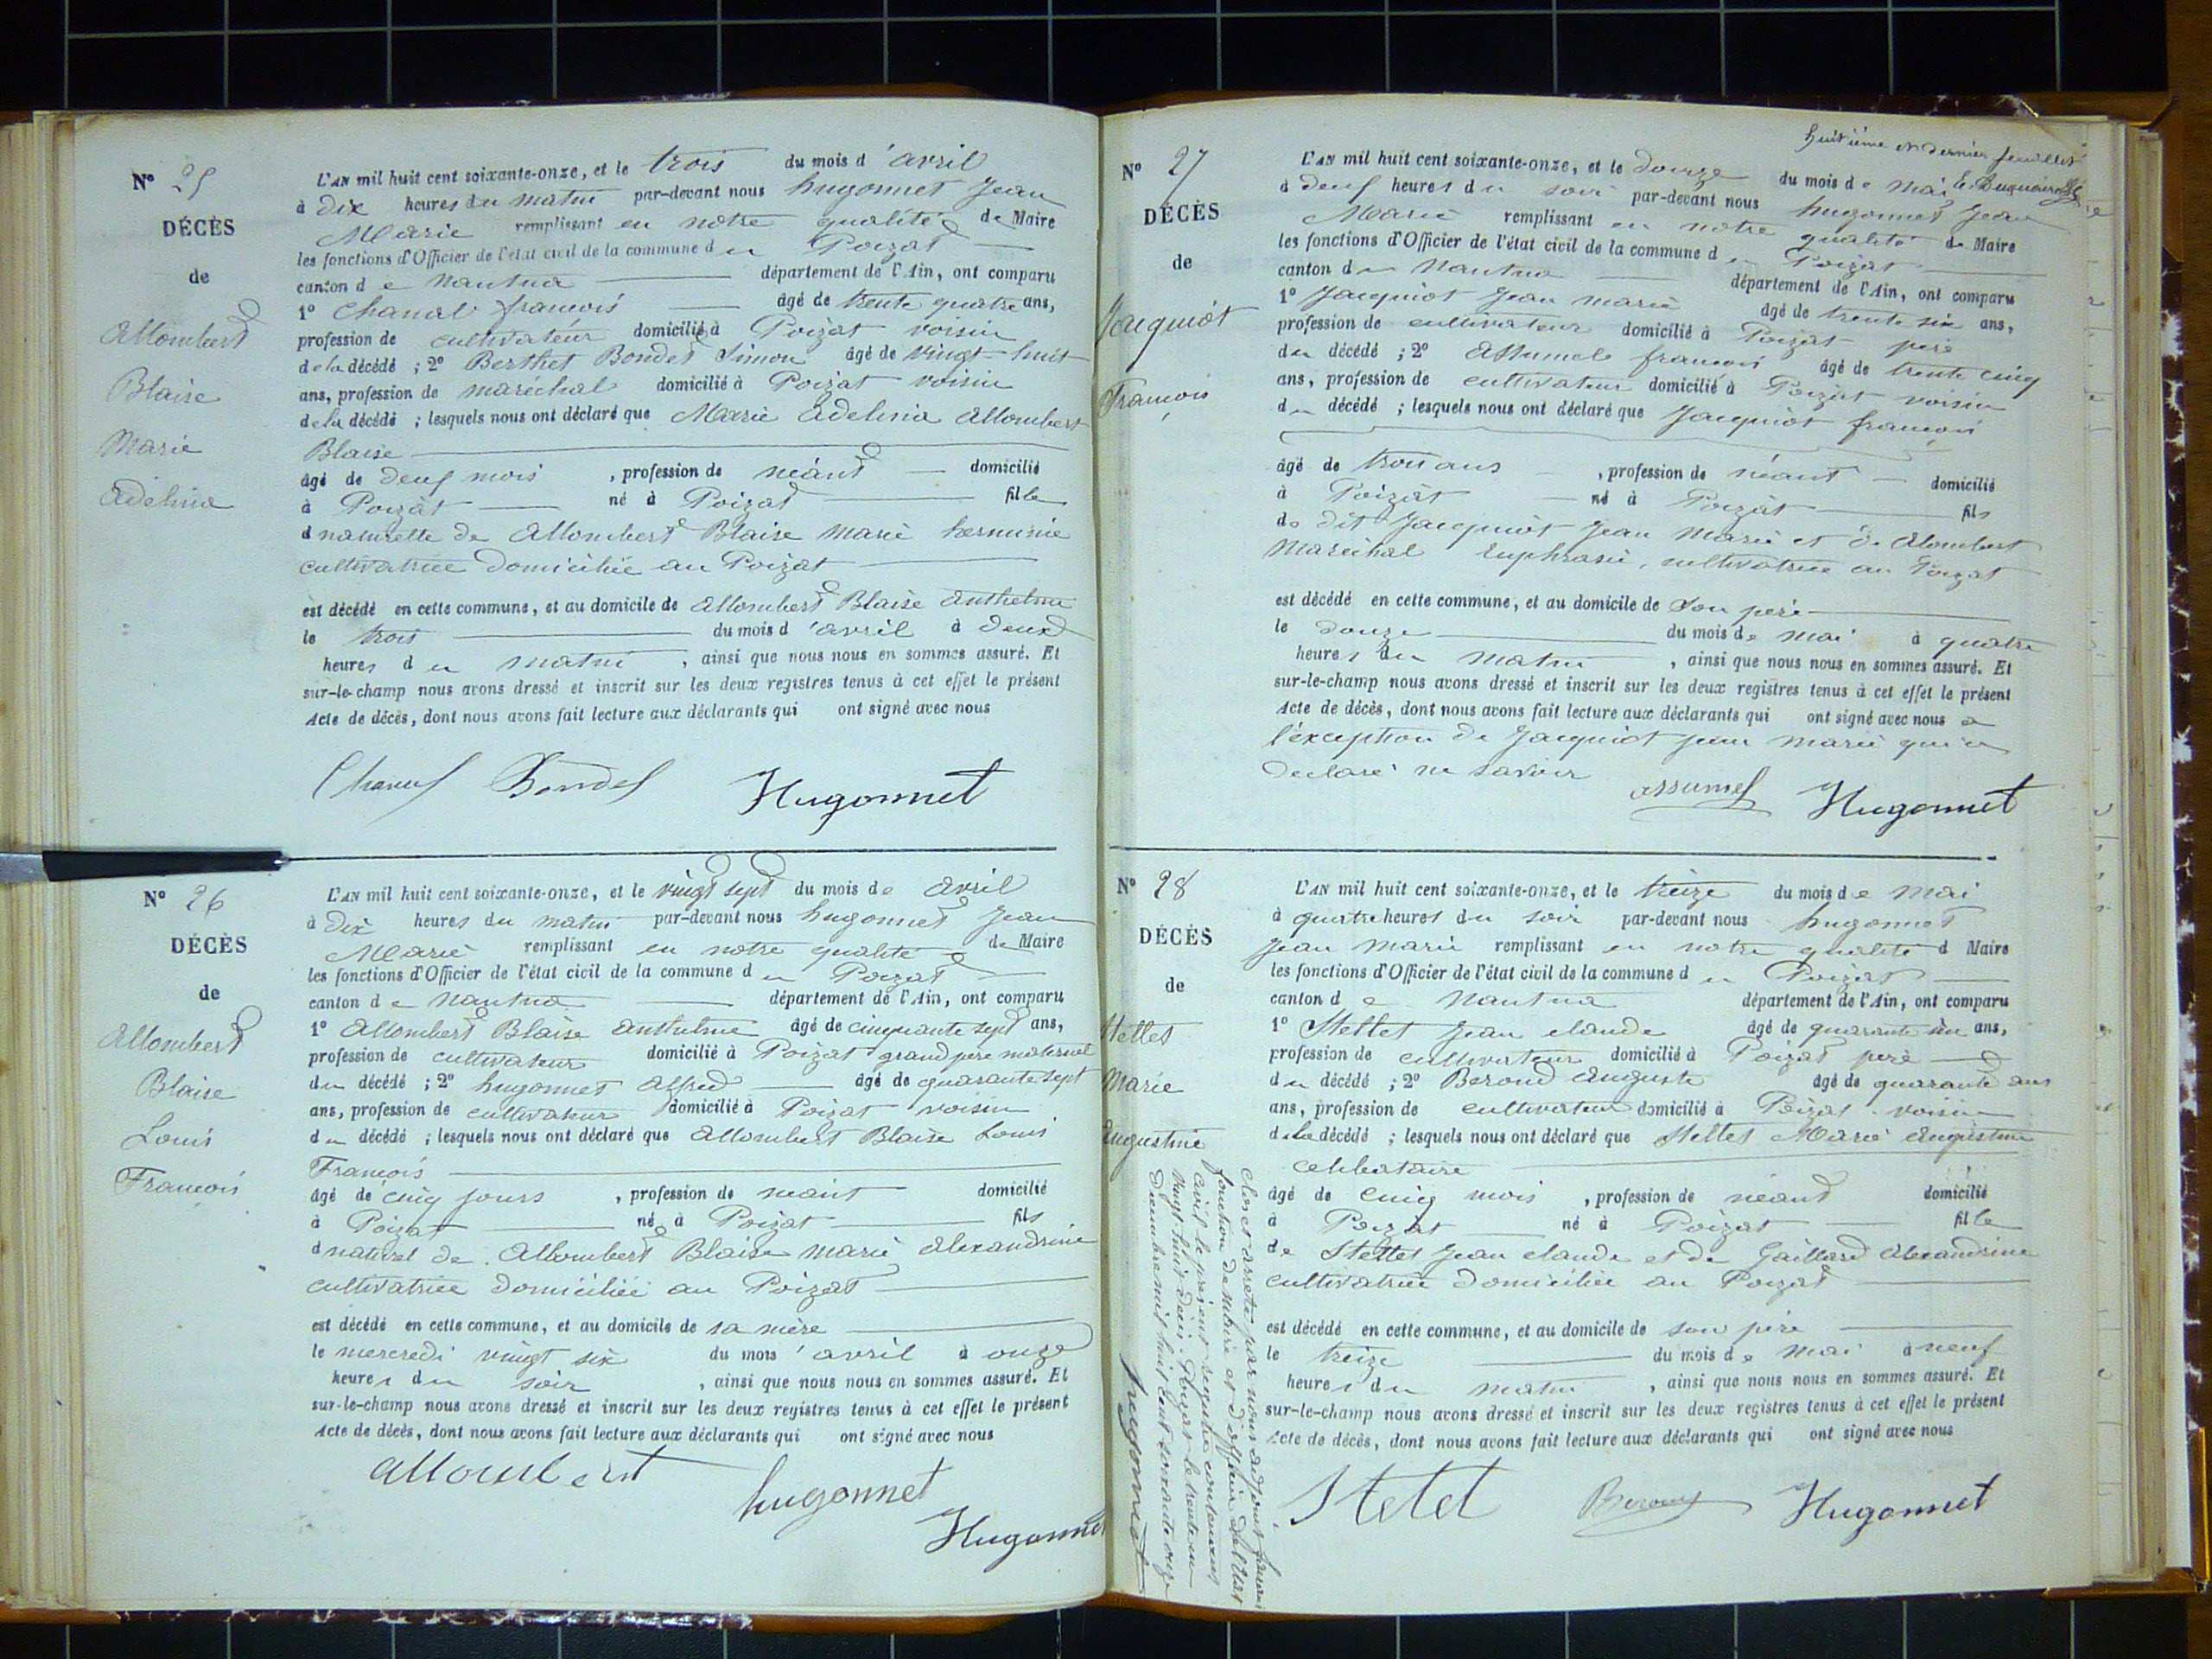 N° 25
DÉCÈS
de
Allombert
Blaise
Marie
Adelina
L'AN mil huit cent soixante-onze, et le trois du mois d'avril
à dix heures du matin par-devant nous hugonnet Jean
Marie remplissant en notre qualité de Maire
les fonctions d'Officier de l'état civil de la commune du Poizat
canton de Nantua département de l'Ain, ont comparu
1° Chanal francois âgé de trente quatre ans,
profession de cultivateur domicilié à Poizat voisin
de la décédé ; 2° Berthet Bondet Simon âgé de vingt-huit
ans, profession de maréchal domicilié à Poizat voisin
de la décédé ; lesquels nous ont déclaré que Marie Adelina Allombert
Blaise
âgé de deuf mois , profession de néant domicilié
à Poizat né à Poizat fille
d naturelle de Allombert Blaise Marie herminie
cultivatrice domiciliée au Poizat
est décédé en cette commune, et au domicile de Allombert Blaise Anthelme
le trois du mois d'avril à deux
heures du matin , ainsi que nous nous en sommes assuré. Et
sur-le-champ nous avons dressé et inscrit sur les deux registres tenus à cet effet le présent
Acte de décès, dont nous avons fait lecture aux déclarants qui ont signé avec nous
Bondet Hugonnet
N° 26
DÉCÈS
de
Allombert
Blaise
Louis
Francois
L'AN mil huit cent soixante-onze, et le vingt sept du mois de avril
à dix heures du matin par-devant nous hugonnet Jean
Marie remplissant en notre qualité de Maire
les fonctions d'Officier de l'état civil de la commune du Poizat
canton de Nantua département de l'Ain, ont comparu
1° Allombert Blaise Anthelme âgé de cinquante sept ans,
profession de cultivateur domicilié à Poizat grand pere maternel
du décédé ; 2° hugonnet Alfred âgé de quarante sept
ans, profession de cultivateur domicilié à Poizat voisin
du décédé ; lesquels nous ont déclaré que Allombert Blaise Louis
Francois
âgé de cinq jours , profession de néant domicilié
à Poizat né à Poizat fils
d naturel de Allombert Blaise Marie Alexandrine
cultivatrice domiciliée au Poizat
est décédé en cette commune, et au domicile de sa mère
le mercredi vingt six du mois 'avril à onze
heures du soir , ainsi que nous nous en sommes assuré. Et
sur-le-champ nous avons dressé et inscrit sur les deux registres tenus à cet effet le présent
Acte de décès, dont nous avons fait lecture aux déclarants qui ont signé avec nous
Allombert hugonnet
Hugonnet
huitième et dernier feuillet
N° 27
DÉCÈS
de
Jacquiot
Francois
L'AN mil huit cent soixante-onze, et le douze du mois de mai
à deuf heures du soir par-devant nous hugonnet Jean
Marie remplissant en notre qualité de Maire
les fonctions d'Officier de l'état civil de la commune du Poizat
canton de Nantua département de l'Ain, ont comparu
1° Jacquiot Jean Marie âgé de trente six ans,
profession de cultivateur domicilié à Poizat père
du décédé ; 2° Assumel francois âgé de trente cinq
ans, profession de cultivateur domicilié à Poizat voisin
du décédé ; lesquels nous ont déclaré que Jacquiot francois
âgé de trois ans , profession de néant domicilié
à Poizat né à Poizat fils
de dit Jacquiot Jean Marie et de Alombert
Maréchal Euphrasie, cultivatrice au Poizat
est décédé en cette commune, et au domicile de son père
le douze du mois de mai à quatre
heures du matin , ainsi que nous nous en sommes assuré. Et
sur-le-champ nous avons dressé et inscrit sur les deux registres tenus à cet effet le présent
Acte de décès, dont nous avons fait lecture aux déclarants qui ont signé avec nous a
l'exception de Jacquiot Jean Marie qui a
déclaré ne savoir
assumel Hugonnet
N° 28
DÉCÈS
de
Stettet
Marie
Augustine
L'AN mil huit cent soixante-onze, et le treize du mois de mai
à quatre heures du soir par-devant nous hugonnet
Jean Marie remplissant en notre qualité d Maire
les fonctions d'Officier de l'état civil de la commune du Poizat
canton de Nantua département de l'Ain, ont comparu
1° Stettet Jean claude âgé de quarante un ans,
profession de cultivateur domicilié à Poizat père
du décédé ; 2° Beroud Auguste âgé de quarante ans
ans, profession de cultivateur domicilié à Poizat voisin
de la décédé ; lesquels nous ont déclaré que Stettet Marie Augustine
celibataire
âgé de cinq mois , profession de néant domicilié
à Poizat né à Poizat fille
de Stettet Jean claude et de Gaillard Alexandrine
cultivatrice domiciliée au Poizat
est décédé en cette commune, et au domicile de son père
le treize du mois de mai à neuf
heures du matin , ainsi que nous nous en sommes assuré. Et
sur-le-champ nous avons dressé et inscrit sur les deux registres tenus à cet effet le présent
Acte de décès, dont nous avons fait lecture aux déclarants qui ont signé avec nous
Stetet Beroud Hugonnet
Clos et arreté par nous adjoint faisant
fonction de Maire et d'officier de l'état
civil le présent registre contenant
vingt huit décès. Poizat le trente un
Decembre mil huit cent soixante onze
hugonnet